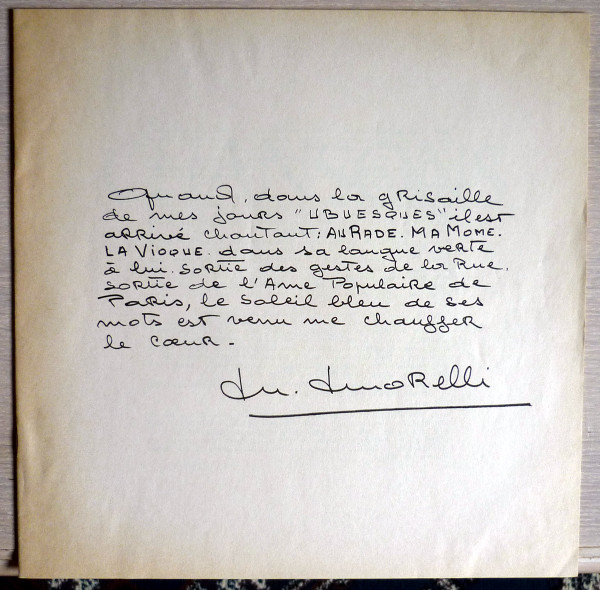 Quand, dans la grisaille
de mes jours "UBUESQUES" il est
arrivé chantant: AURADE. MA MOME.
LA VIOQUE. dans sa langue verte
à lui. sortie des gestes de la Rue.
sortie de l'Ame Populaire de
Paris, le soleil bleu de ses
mots est venu me chauffer
le cœur.
M. Morelli